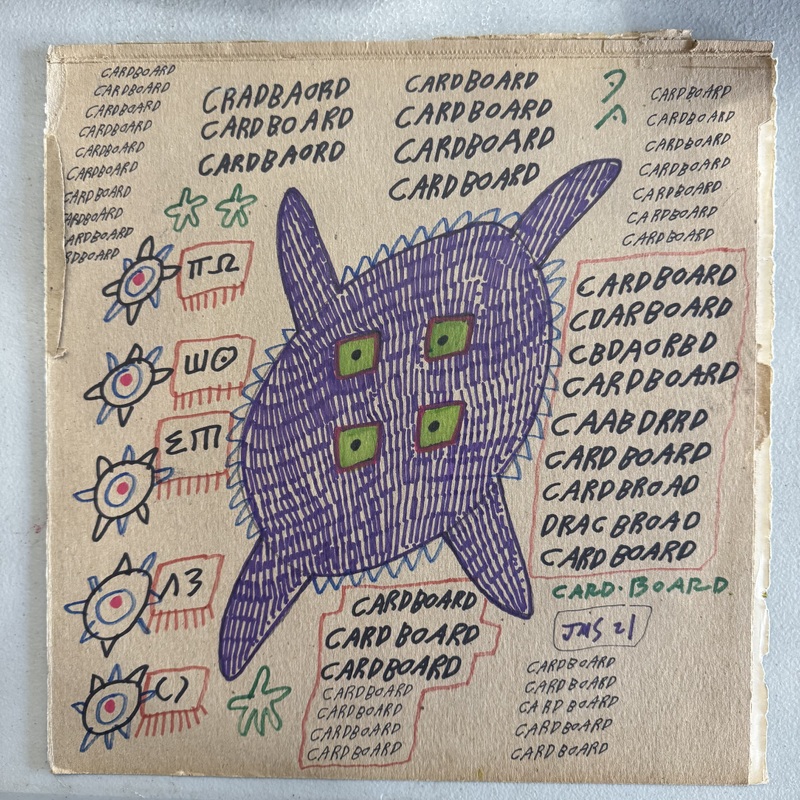 CARDBOARD
CARDBOARD
CARDBOARD
CARDBOARD
CARDBOARD
CARDBOARD
CARDBOARD
CARDBOARD
CARDBOARD
RDBOARD
CRADBAORD
CARDBOARD
CARDBAORD
CARDBOARD
CARDBOARD
CARDBOARD
CARDBOARD
CARDBOARD
CARDBOARD
CARDBOARD
CARDBOARD
CARDBOARD
CARDBOARD
CARDBOARD
ΠΩ
ШΘ
ΣΠ
Λ3
()
CARDBOARD
CDARBOARD
CBDAORBD
CARDBOARD
CAABDRRD
CARDBOARD
CARDBROAD
DRACBROAD
CARDBOARD
CARD·BOARD.
JMS 21
CARDBOARD
CARDBOARD
CARDBOARD
CARDBOARD
CARDBOARD
CARDBOARD
CARDBOARD
CARDBOARD
CARDBOARD
CARDBOARD
CARDBOARD
CARDBOARD